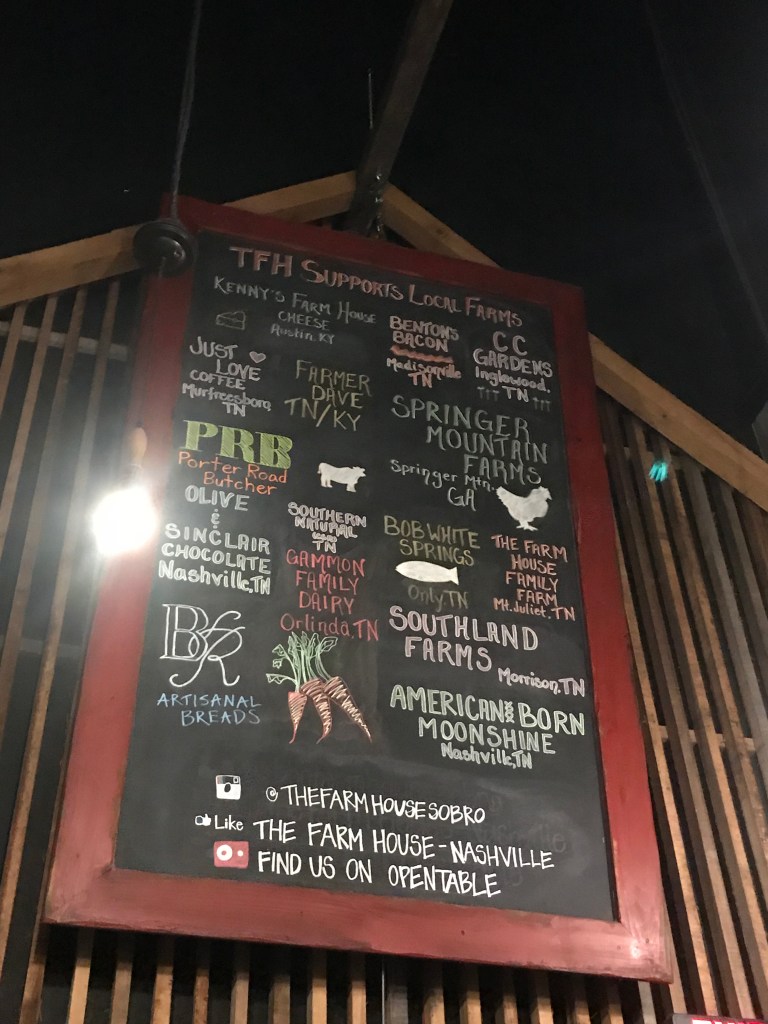 TFH SUPPORTS LOCAL FARMS
KENNY'S FARM HOUSE
CHEESE
Austin, KY
BENTON'S
BACON
Madisonville
TN
CC
GARDENS
Inglewood,
TN
JUST
LOVE
COFFEE
Murfreesboro,
TN
FARMER
DAVE
TN/KY
SPRINGER
MOUNTAIN
FARMS
Springer Mtn.
GA
PRB
Porter Road
Butcher
OLIVE
&
SINCLAIR
CHOCOLATE
Nashville, TN
SOUTHERN
NATURAL
TN
GAMMON
FAMILY
DAIRY
Orlinda, TN
BOB WHITE
SPRINGS
Only, TN
THE FARM
HOUSE
FAMILY
FARM
Mt. Juliet, TN
SOUTHLAND
FARMS
Morrison, TN
ARTISANAL
BREADS
AMERICAN BORN
MOONSHINE
Nashville, TN
@THEFARMHOUSESOBRO
Like THE FARM HOUSE-NASHVILLE
FIND US ON OPENTABLE